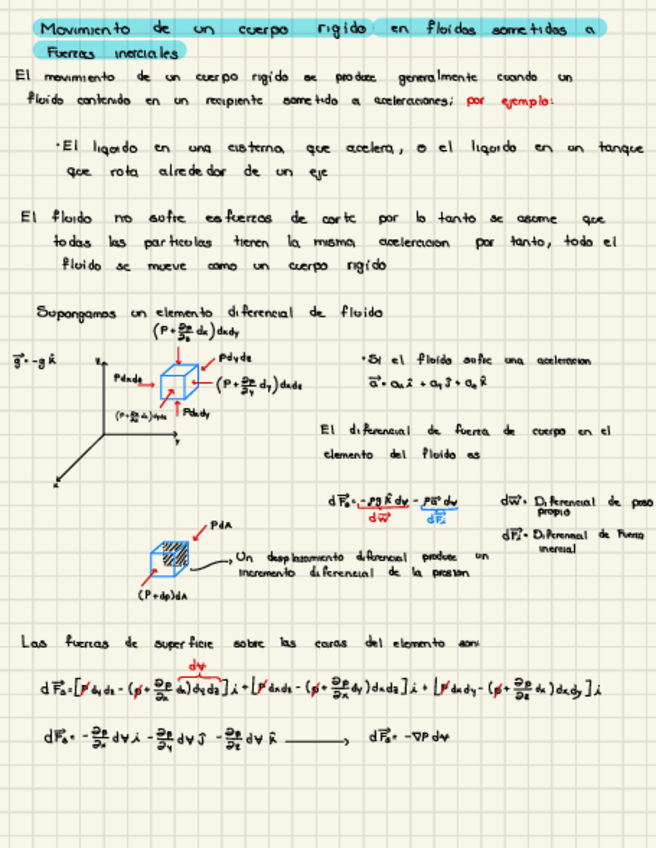 Movimiento de un cuerpo rigido en fluidos sometidos a
Fuerzas inerciales
El movimiento de un cuerpo rigido se produce generalmente cuando un
fluido contenido en un recipiente sometido a aceleraciones; por ejemplo:
·El liquido en una cisterna, que acelera, o el liquido en un tanque
que rota alrededor de un eje
El fluido no sufre esfuerzos de corte por lo tanto se asume que
todas las particulas tienen la misma aceleracion por tanto, todo el
fluido se mueve como un cuerpo rigido
Supongamos un elemento diferencial de fluido
(P+∂p/∂z dz)dxdy
g⃗=-g k̂
z
Pdydz
Pdxdz
(P+∂p/∂y dy)dxdz
Pdxdy
y
x
·Si el fluido sufre una aceleracion
a⃗= aₓ î + aᵧ ĵ + a_z k̂
El diferencial de fuerza de cuerpo en el
elemento del fluido es
dF⃗=-ρg k̂ d∀ - ρa⃗ d∀
dw⃗ dF⃗i
dw⃗= Diferencial de peso
propio
dF⃗i= Diferencial de Fuerza
inercial
PdA
Un desplazamiento diferencial produce un
incremento diferencial de la presion
(P+dp)dA
Las fuerzas de superficie sobre las caras del elemento son:
d∀
dF⃗s=[p dydz - (p+ ∂p/∂x dx)dydz]i + [p dxdz - (p+ ∂p/∂y dy)dxdz]j + [p dxdy - (p+ ∂p/∂z dz)dxdy]i
dF⃗s= -∂p/∂x d∀ i -∂p/∂y d∀ ĵ -∂p/∂z d∀ k̂ ⟶ dF⃗s= -∇P d∀